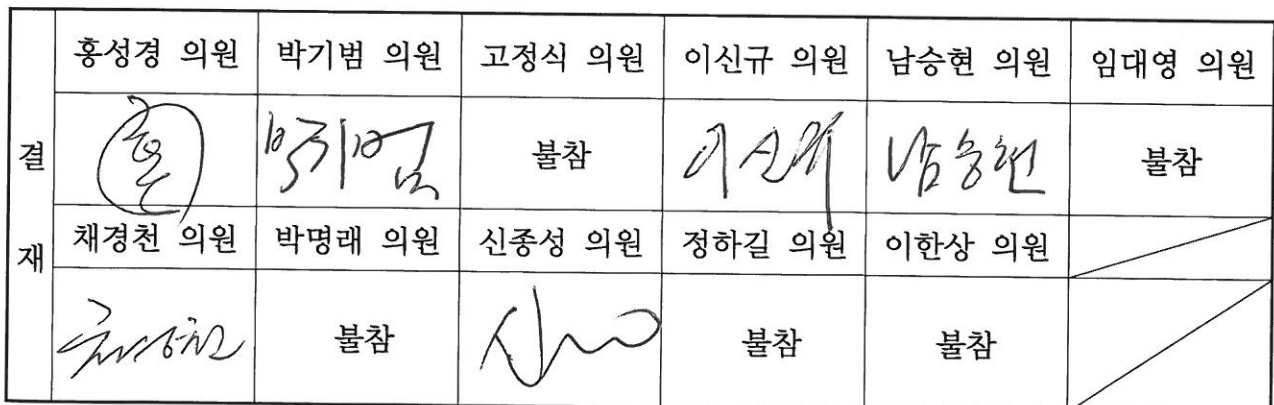 홍성경 의원 박기범 의원 고정식 의원 이신규 의원 남승현 의원 임대영 의원
결 홍 박기범 불참 이신규 남승현 불참
재 채경천 의원 박명래 의원 신종성 의원 정하길 의원 이한상 의원
채경천 불참 신 불참 불참